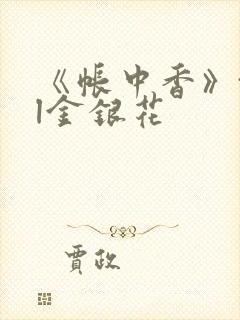 《帐中香》
|金银花
贾政